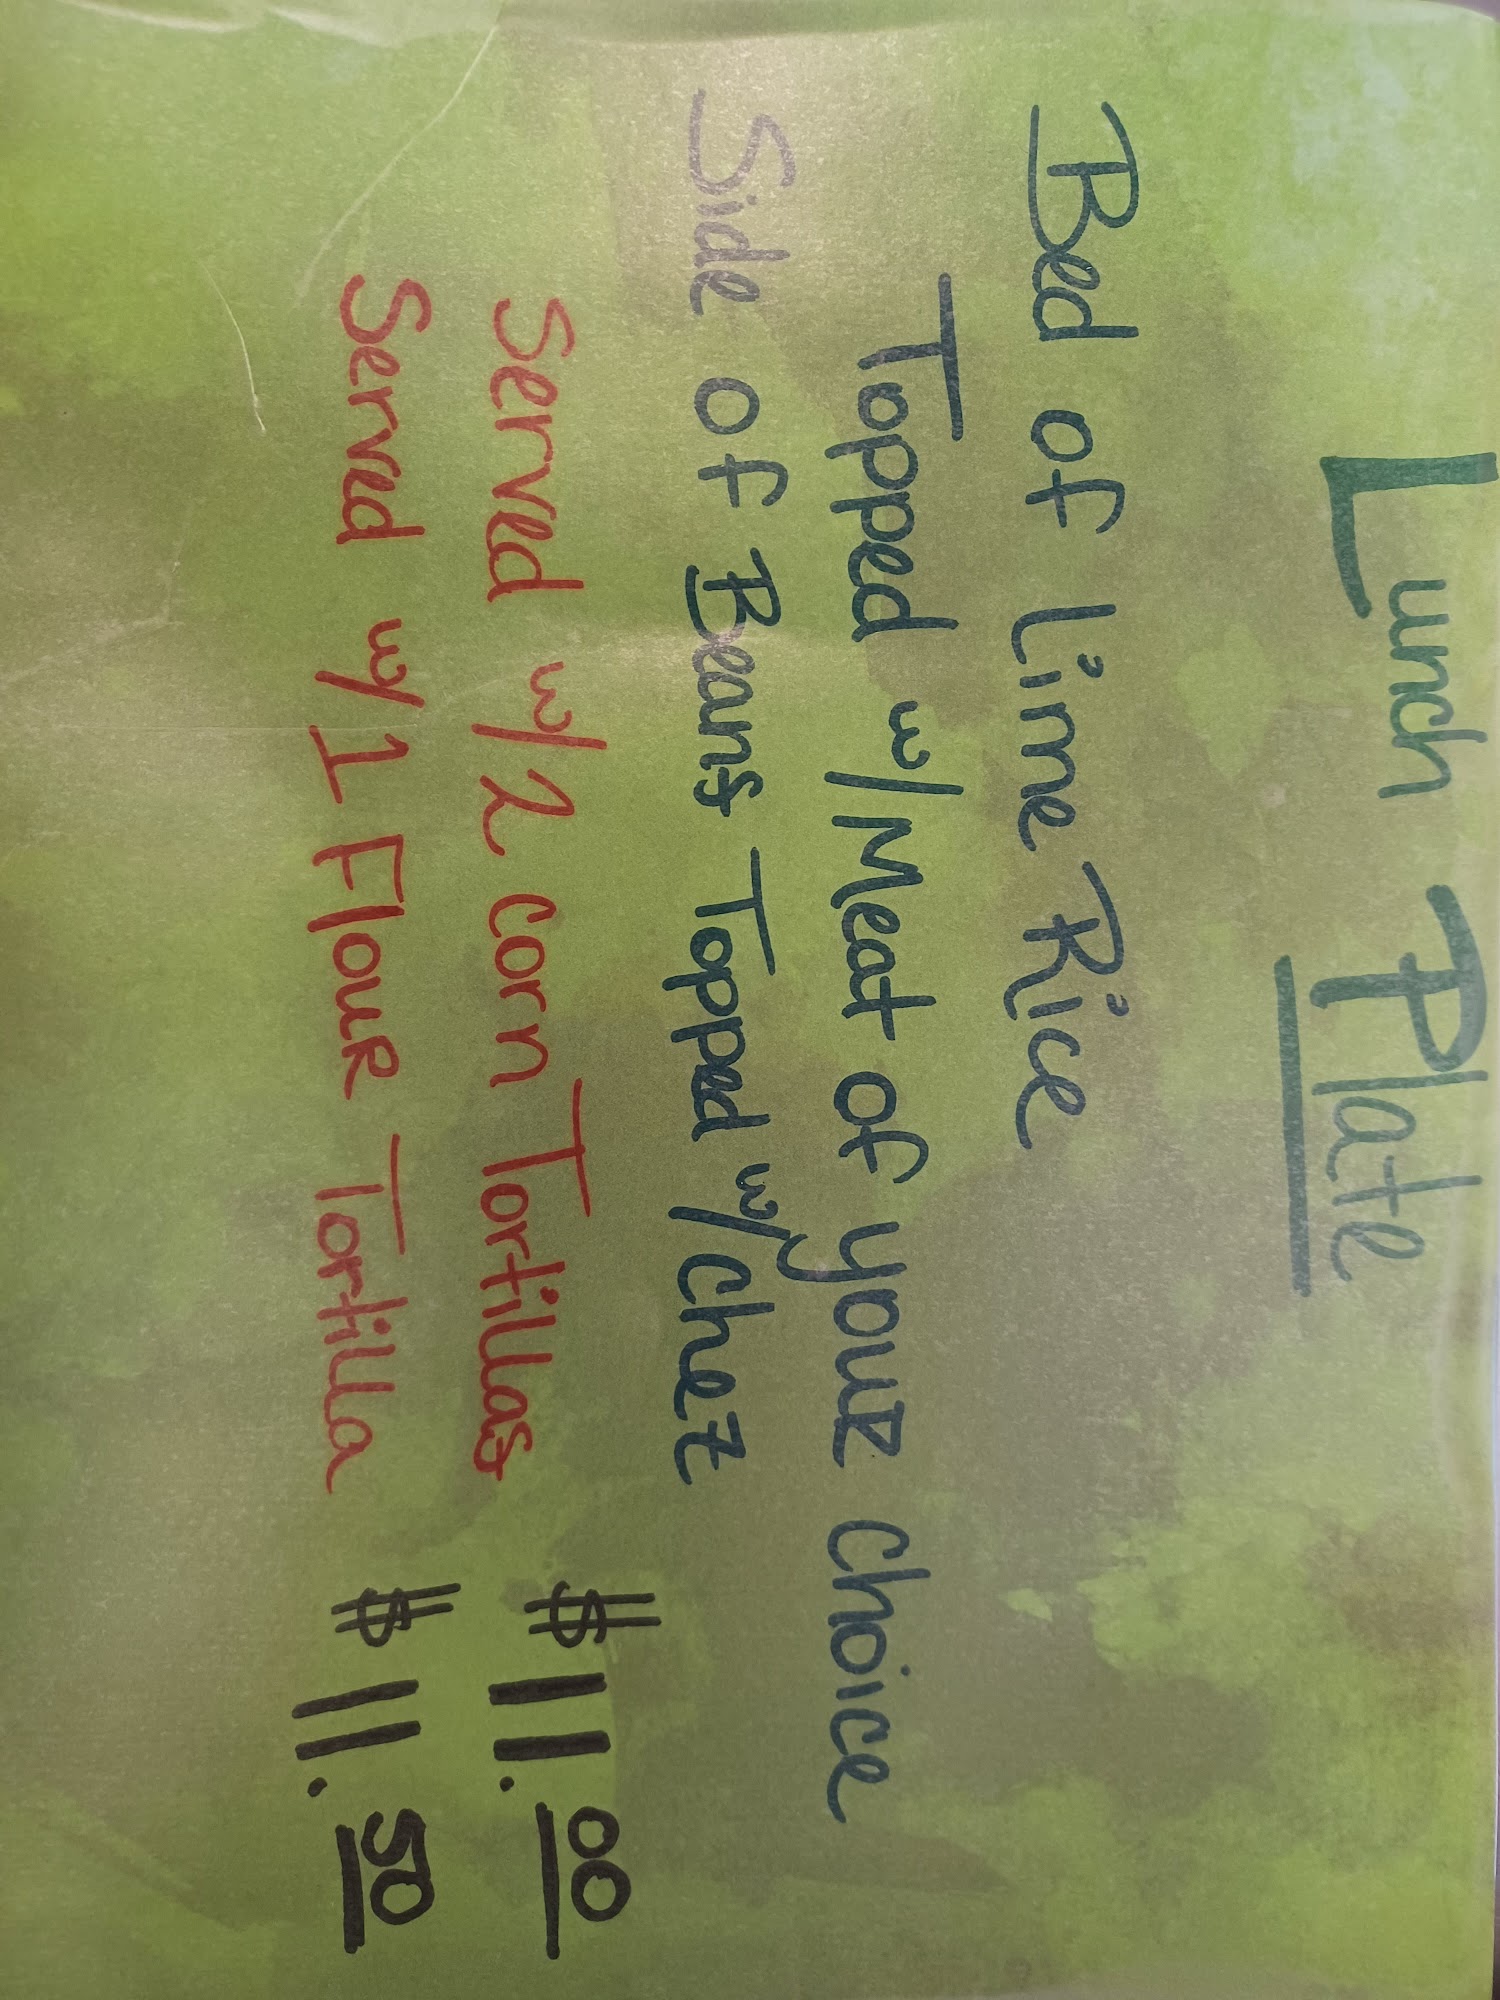 Lunch Plate
Bed of Lime Rice
Topped w/Meat of your choice
Side of Beans Topped w/chez
Served w/2 corn Tortillas $11.00
Served w/1 Flour Tortilla $11.50